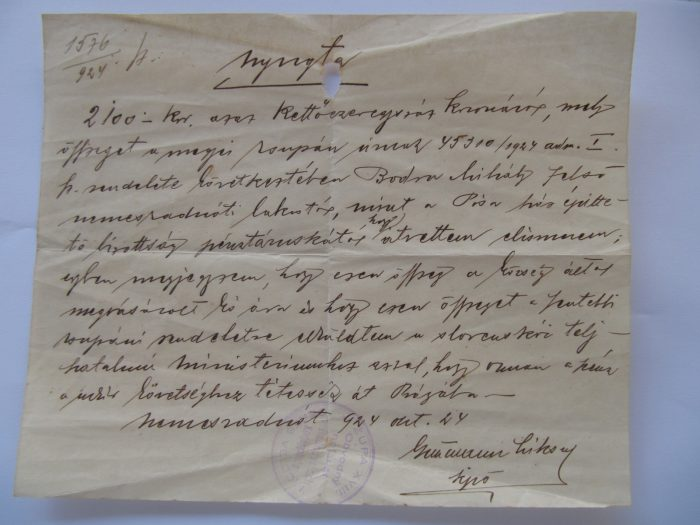 1576/924.
nyugta
2100- kor. azaz Kettőezeregyszáz koronáról, mely
összeget a megyei zsupán úrnak 45300/1924 adm. I.
sz. rendelete következtében Bodra Mihály Felső
nemesradnóti lakostól, mint a Pósa ház építte-
tő bizottság pénztárnokától hogy átvettem elismerem;
egyben megjegyzem, hogy ezen összeg a község által
megvásárolt kő ára és hogy ezen összeget a fentebbi
zsupáni rendeletre elküldtem a slovenskói telj-
hatalmú ministeriumhoz azzal, hogy onnan a pénz
a követséghez tétessék át Prágába-
Nemesradnót 924 okt. 24